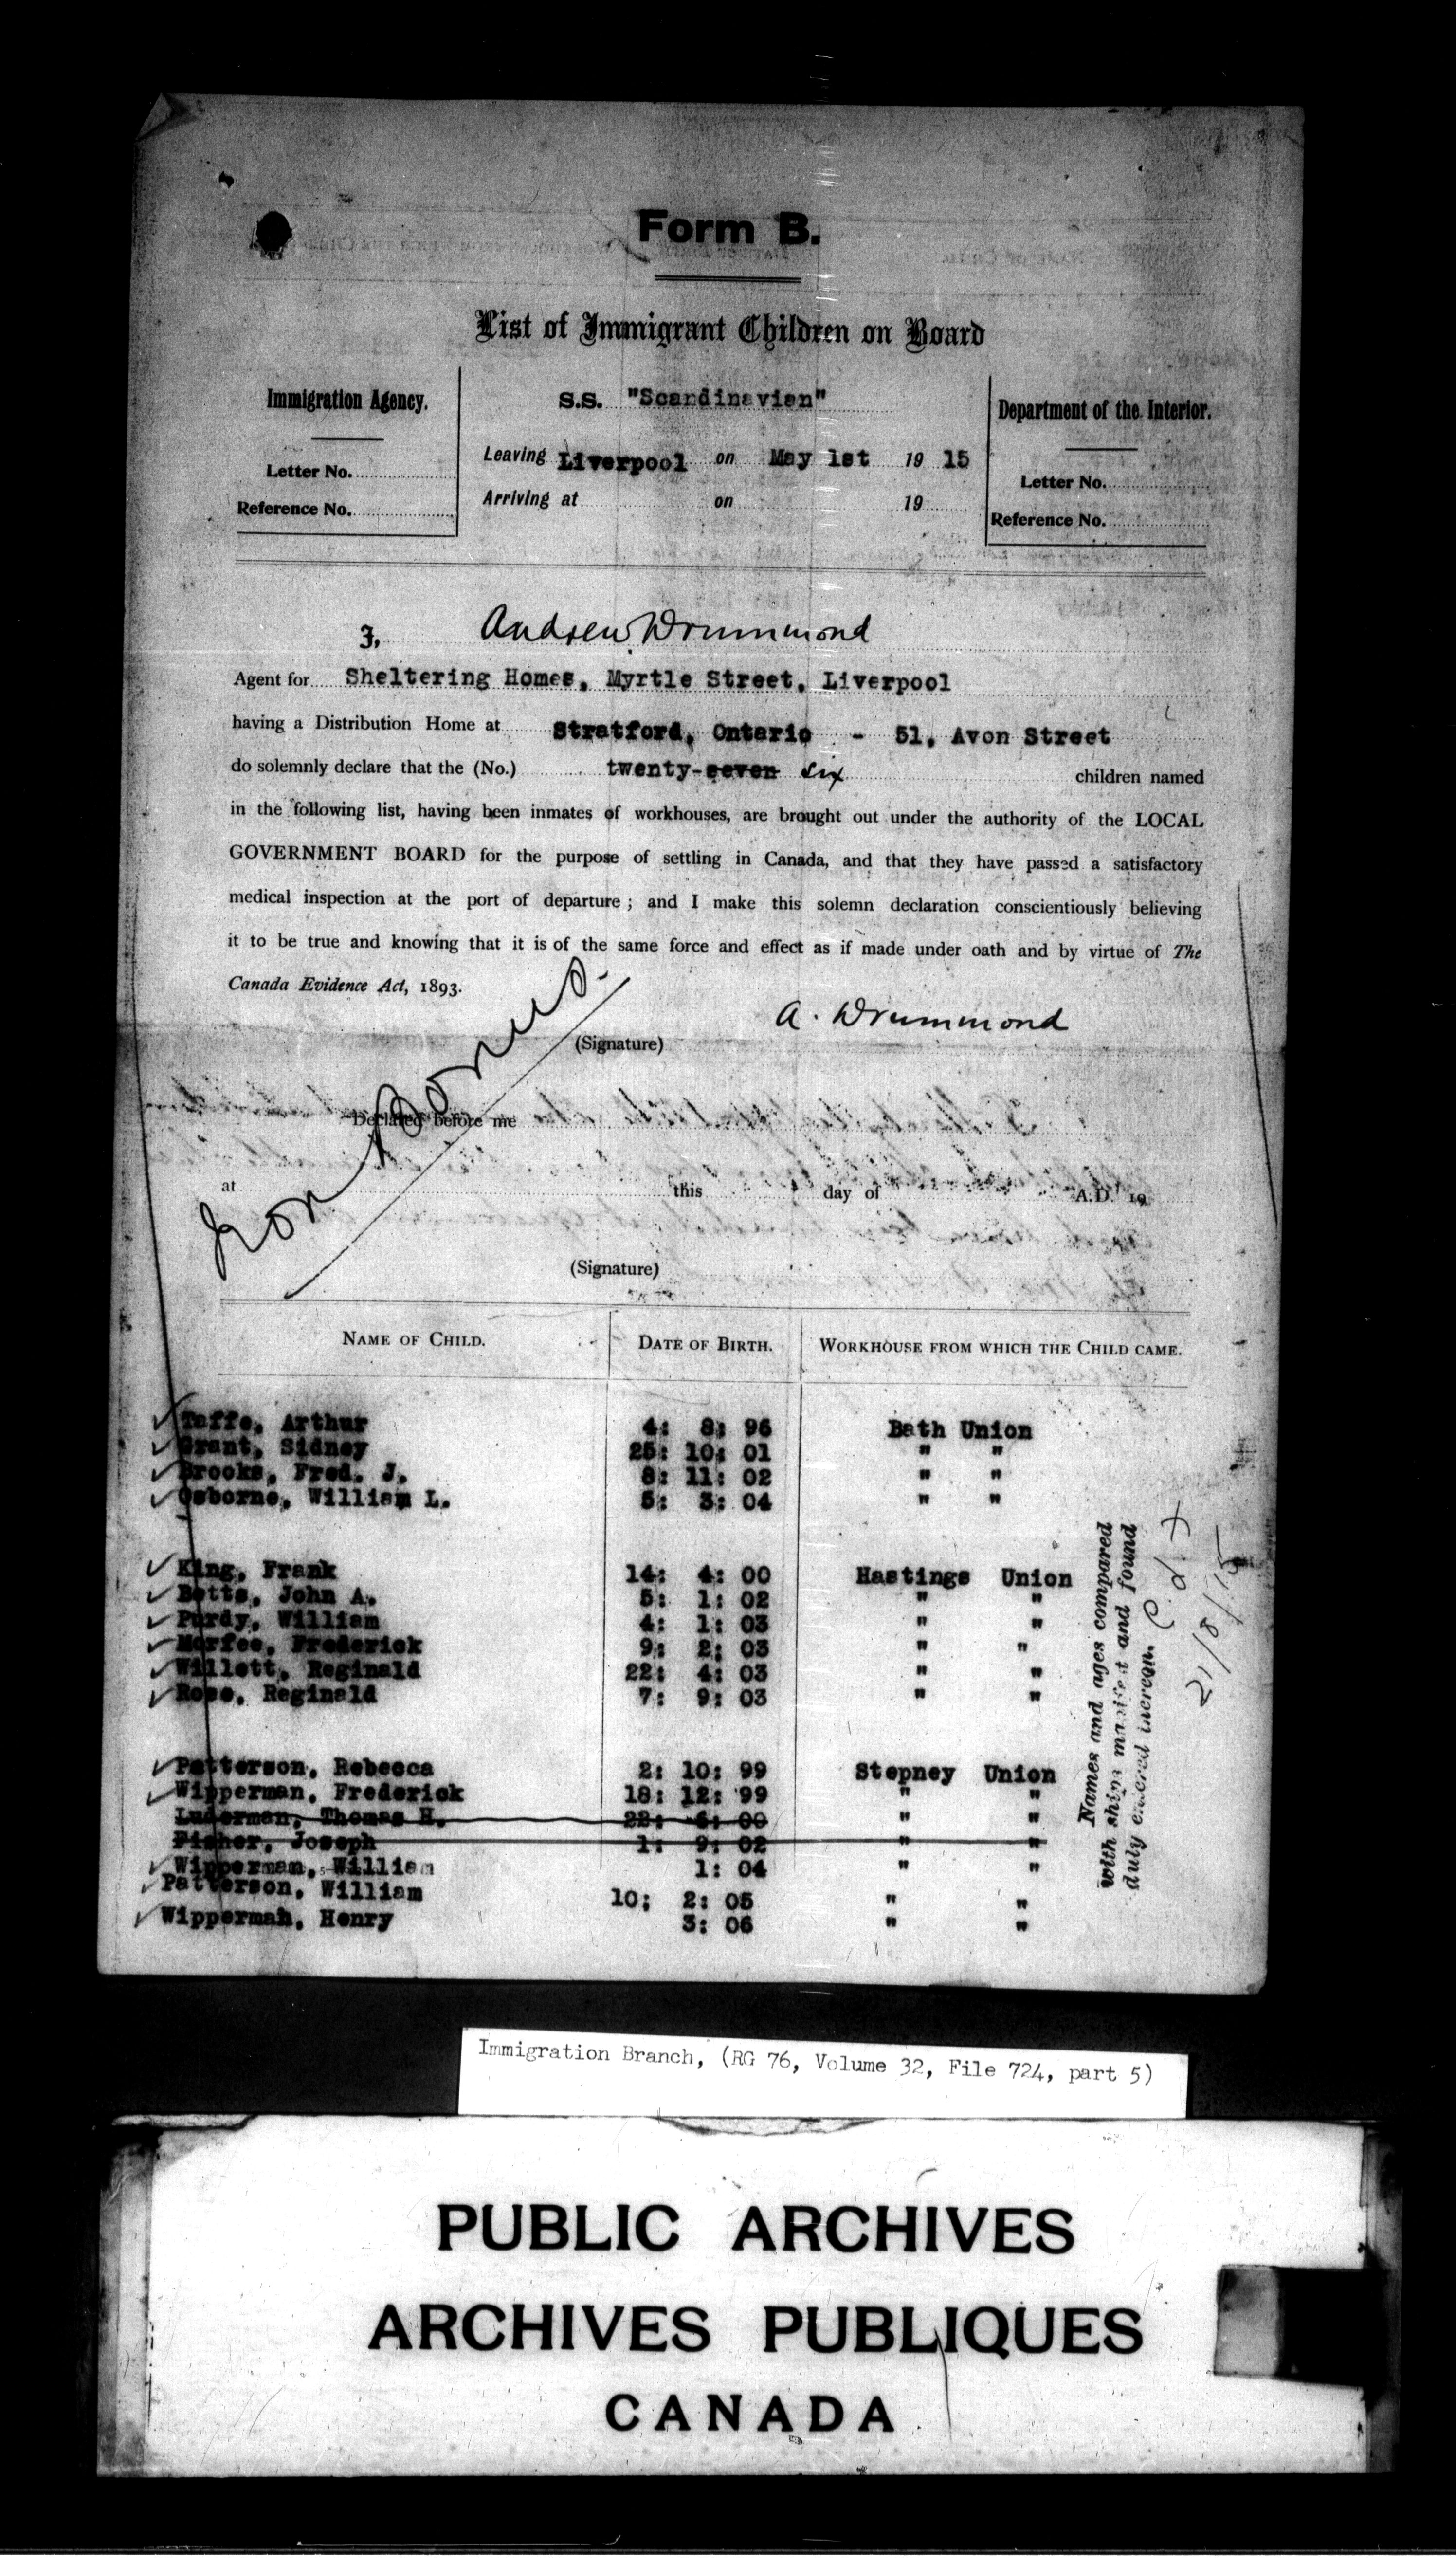 Form B.
List of Immigrant Children on Board
Immigration Agency.
Letter No.
Reference No.
S.S. "Scandinavian"
Leaving Liverpool on May 1st 19 15
Arriving at on 19
Department of the Interior.
Letter No.
Reference No.
I, Andrew Drummond
Agent for Sheltering Homes, Myrtle Street, Liverpool
having a Distribution Home at Stratford, Ontario - 51, Avon Street
do solemnly declare that the (No.) twenty-seven six children named
in the following list, having been inmates of workhouses, are brought out under the authority of the LOCAL
GOVERNMENT BOARD for the purpose of settling in Canada, and that they have passed a satisfactory
medical inspection at the port of departure; and I make this solemn declaration conscientiously believing
it to be true and knowing that it is of the same force and effect as if made under oath and by virtue of The
Canada Evidence Act, 1893.
A. Drummond
(Signature)
Declared before me
at this day of A.D. 19
(Signature)
NAME OF CHILD. DATE OF BIRTH. WORKHOUSE FROM WHICH THE CHILD CAME.
Taffe, Arthur 4: 8: 96 Bath Union
Grant, Sidney 25: 10: 01 " "
Brooks, Fred. J. 8: 11: 02 " "
Osborne, William L. 5: 3: 04 " "
King, Frank 14: 4: 00 Hastings Union
Betts, John A. 5: 1: 02 " "
Purdy, William 4: 1: 03 " "
Morfee, Frederick 9: 2: 03 " "
Willett, Reginald 22: 4: 03 " "
Rose, Reginald 7: 9: 03 " "
Patterson, Rebecca 2: 10: 99 Stepney Union
Wipperman, Frederick 18: 12: 99 " "
Luderman, Thomas H. 22: 6: 00 " "
Fisher, Joseph 1: 9: 02 " "
Wipperman, William 1: 04 " "
Patterson, William 10: 2: 05 " "
Wipperman, Henry 3: 06 " "
Names and ages compared
with ships manifest and found
duly entered thereon.
21/8/15
Immigration Branch, (RG 76, Volume 32, File 724, part 5)
PUBLIC ARCHIVES
ARCHIVES PUBLIQUES
CANADA